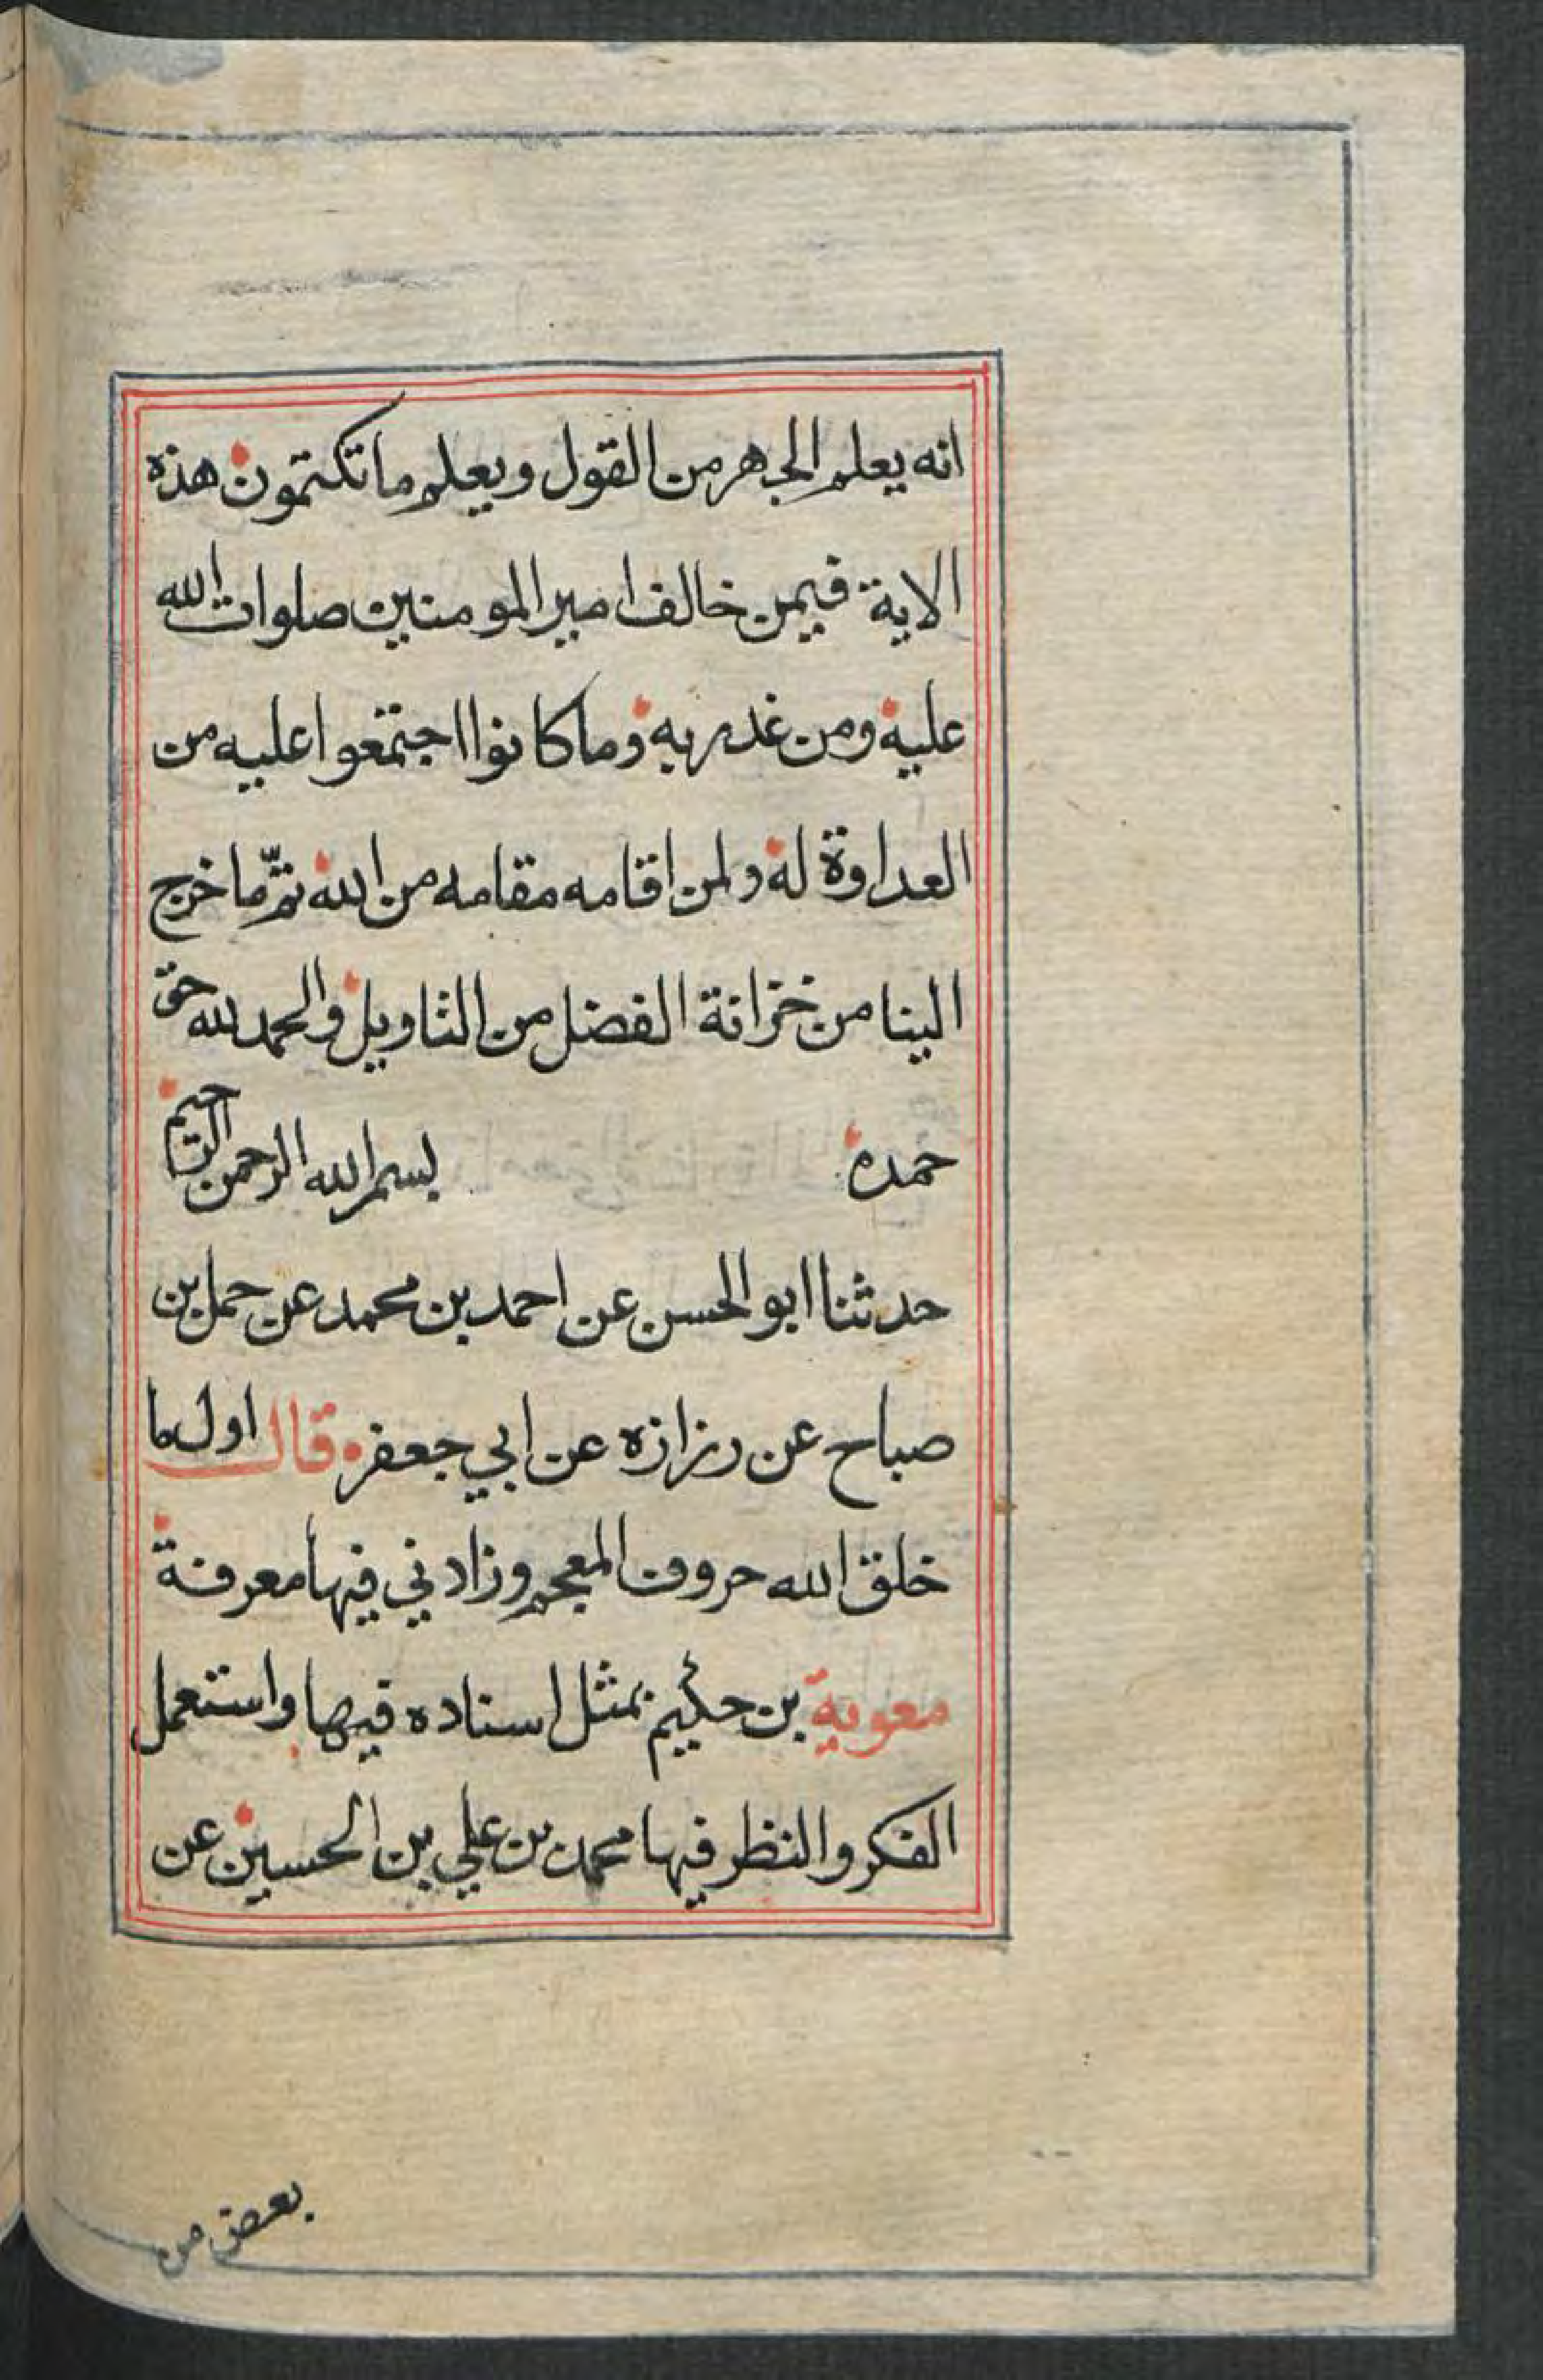 انه يعلم الجهر من القول ويعلم ما تكتمون هذه
الاية فيمن خالف امير المومنين صلوات الله
عليه ومن غدر به وما كانوا اجتمعوا عليه من
العداوة له ولمن اقامه مقامه من الله ثمّ ما خرج
الينا من خزانة الفضل من التاويل والحمد لله حق
حمده بسم الله الرحمن الرحيم
حدثنا ابو الحسن عن احمد بن محمد عن حمل بن
صباح عن رزازه عن ابي جعفر قال اول ما
خلق الله حروف المعجم وزادني فيها معرفة
معوية بن حكيم بمثل اسناده فيها واستعمل
الفكر والنظر فيها محمد بن علي بن الحسين عن
بعض من